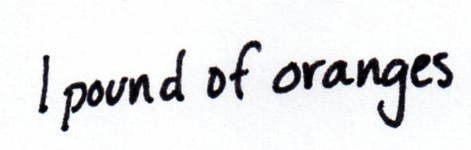 1 pound of oranges